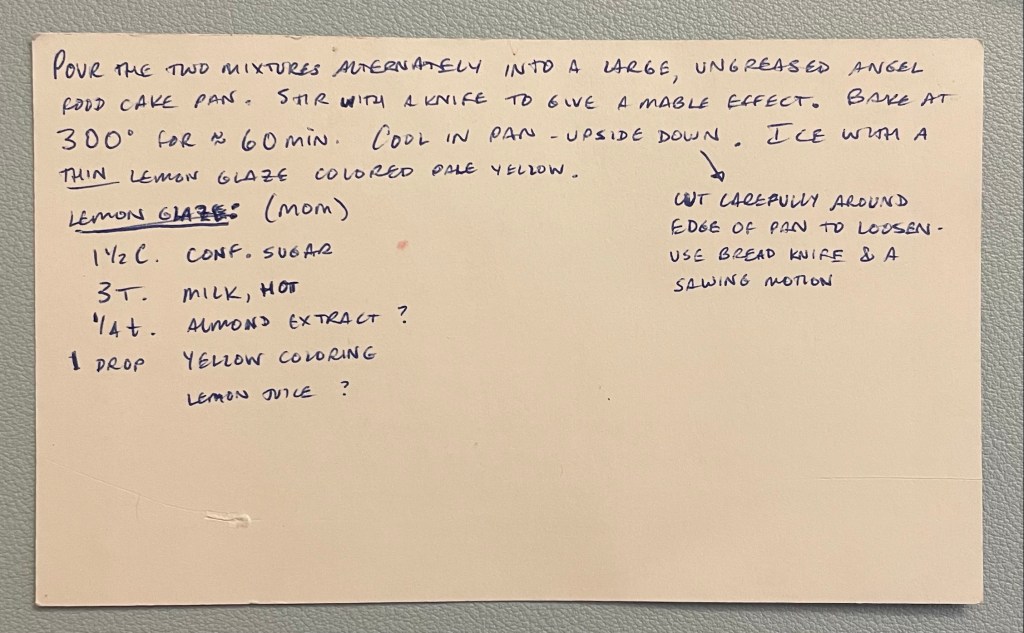 POUR THE TWO MIXTURES ALTERNATELY INTO A LARGE, UNGREASED ANGEL
FOOD CAKE PAN. STIR WITH A KNIFE TO GIVE A MABLE EFFECT. BAKE AT
300° FOR ≈ 60 MIN. COOL IN PAN - UPSIDE DOWN. ICE WITH A
THIN LEMON GLAZE COLORED PALE YELLOW.
LEMON GLAZE: (MOM)
1 1/2 C. CONF. SUGAR
3 T. MILK, HOT
1/4 t. ALMOND EXTRACT ?
1 DROP YELLOW COLORING
LEMON JUICE ?
CUT CAREFULLY AROUND
EDGE OF PAN TO LOOSEN -
USE BREAD KNIFE & A
SAWING MOTION